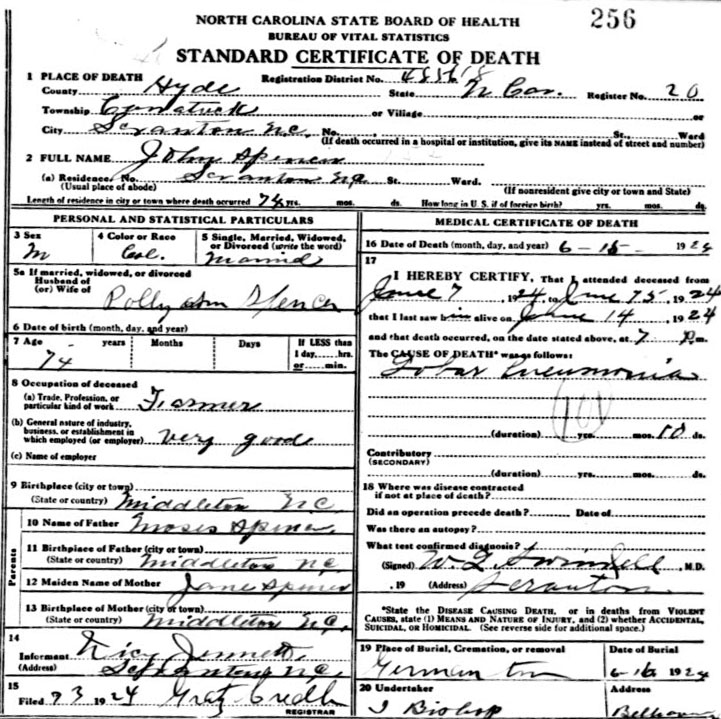 256
NORTH CAROLINA STATE BOARD OF HEALTH
BUREAU OF VITAL STATISTICS
STANDARD CERTIFICATE OF DEATH
1 PLACE OF DEATH Registration District No.
County Hyde State N Car. Register No. 20
Township or Village or
City Scranton N.C. No. St., Ward
(If death occurred in a hospital or institution, give its NAME instead of street and number)
2 FULL NAME John Spencer
(a) Residence. No. Scranton N.C. St. Ward.
(Usual place of abode) (If nonresident give city or town and State)
Length of residence in city or town where death occurred 74 yrs. mos. ds. How long in U. S. if of foreign birth? yrs. mos. ds.
PERSONAL AND STATISTICAL PARTICULARS
3 Sex 4 Color or Race 5 Single, Married, Widowed, or Divorced (write the word)
M Col. Married
5a If married, widowed, or divorced
Husband of
(or) Wife of Polly Ann Spencer
6 Date of birth (month, day, and year)
7 Age years Months Days If LESS than
74 1 day,.....hrs.
or.....min.
8 Occupation of deceased
(a) Trade, Profession, or
particular kind of work Farmer
(b) General nature of industry,
business, or establishment in
which employed (or employer) very good
(c) Name of employer
9 Birthplace (city or town)
(State or country) Middleton N.C.
Parents
10 Name of Father Moses Spencer
11 Birthplace of Father (city or town)
(State or country) Middleton N.C.
12 Maiden Name of Mother Jane Spencer
13 Birthplace of Mother (city or town)
(State or country) Middleton N.C.
14
Informant Jennett
(Address) Scranton N.C.
15
Filed 7 3 1924 Gratz Credle
REGISTRAR
MEDICAL CERTIFICATE OF DEATH
16 Date of Death (month, day, and year) 6-15- 1924
17
I HEREBY CERTIFY, That I attended deceased from
June 7 1924 to June 15, 1924
that I last saw him alive on June 14, 1924
and that death occurred, on the date stated above, at 7 P.m.
The CAUSE OF DEATH* was as follows:
Lobar Pneumonia
101
(duration) yrs. mos. 10 ds.
Contributory
(SECONDARY)
(duration) yrs. mos. ds.
18 Where was disease contracted
if not at place of death?
Did an operation precede death? Date of
Was there an autopsy?
What test confirmed diagnosis?
(Signed) Swindell, M.D.
, 19 (Address) Scranton
*State the DISEASE CAUSING DEATH, or in deaths from VIOLENT
CAUSES, state (1) MEANS AND NATURE OF INJURY, and (2) whether ACCIDENTAL,
SUICIDAL, or HOMICIDAL. (See reverse side for additional space.)
19 Place of Burial, Cremation, or removal Date of Burial
Germanton 6-16 1924
20 Undertaker Address
J Bishop Belhaven